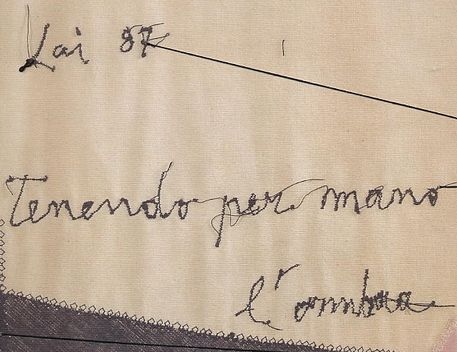 Lai 87
Tenendo per mano
l'ombra